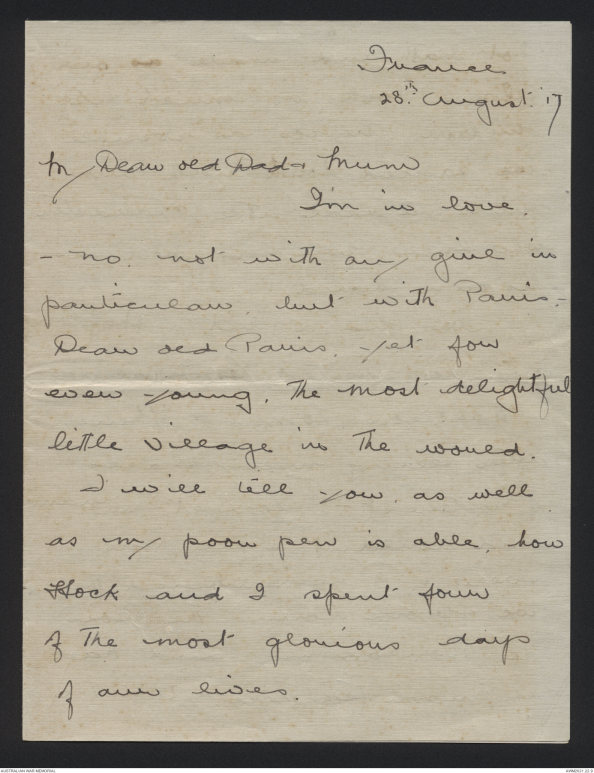 France
28th August. 17
My Dear old Dad & Mum
I'm in love.
- no. not with any girl in
particular. but with Paris. -
Dear old Paris. - yet for
ever young. The most delightful
little village in The world.
I will tell you. as well
as my poor pen is able. how
Hock and I spent four
of The most glorious days
of our lives.
AUSTRALIAN WAR MEMORIAL